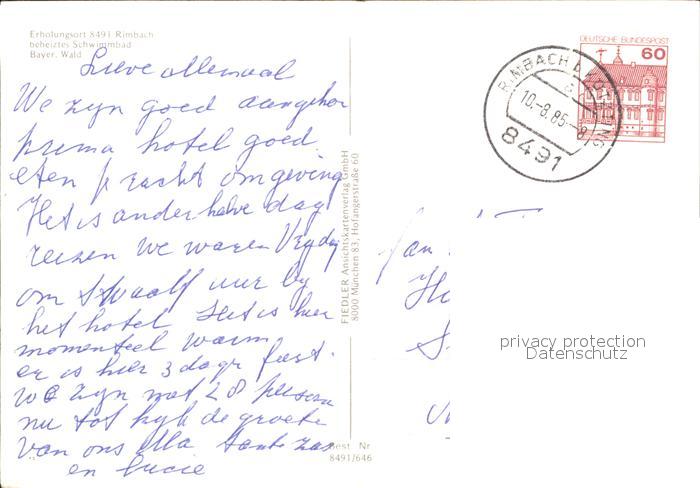 Erholungsort 8491 Rimbach
beheiztes Schwimmbad
Bayer. Wald
Lieve allemaal
We zyn goed aangekom
prima hotel goed
eten pracht omgeving
Het is anderhalve dag
reizen We waren Vrydag
om twaalf uur by
het hotel Het is hier
momenteel warm
er is hier 3 dage feest.
we zyn met 28 persone
nu tot kyk de groete
van ons alle tante
en Lucie
FIEDLER Ansichtskartenverlag GmbH
8000 München 83, Hofangerstraße 60
Best Nr
8491/646
DEUTSCHE BUNDESPOST
60
RIMBACH B KÖTZTING
a
10.-8.85.-8
8491
privacy protection
Datenschutz